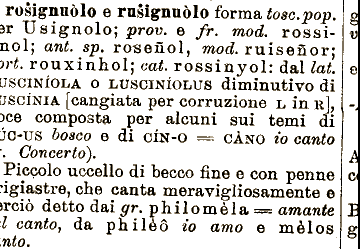 rošignuòlo e rušignuòlo forma tosc. pop.
er Usignolo; prov. e fr. mod. rossi-
nol; ant. sp. roseñol, mod. ruiseñor;
ort. rouxinhol; cat. rossinyol: dal lat.
USCINÍOLA o LUSCINÍOLUS diminutivo di
USCÍNIA [cangiata per corruzione L in R],
oce composta per alcuni sui temi di
ÚC-US bosco e di CÍN-O = CÀNO io canto
. Concerto).
Piccolo uccello di becco fine e con penne
rigiastre, che canta meravigliosamente e
erciò detto dai gr. philomèla = amante
el canto, da philéô io amo e mèlos
anto.